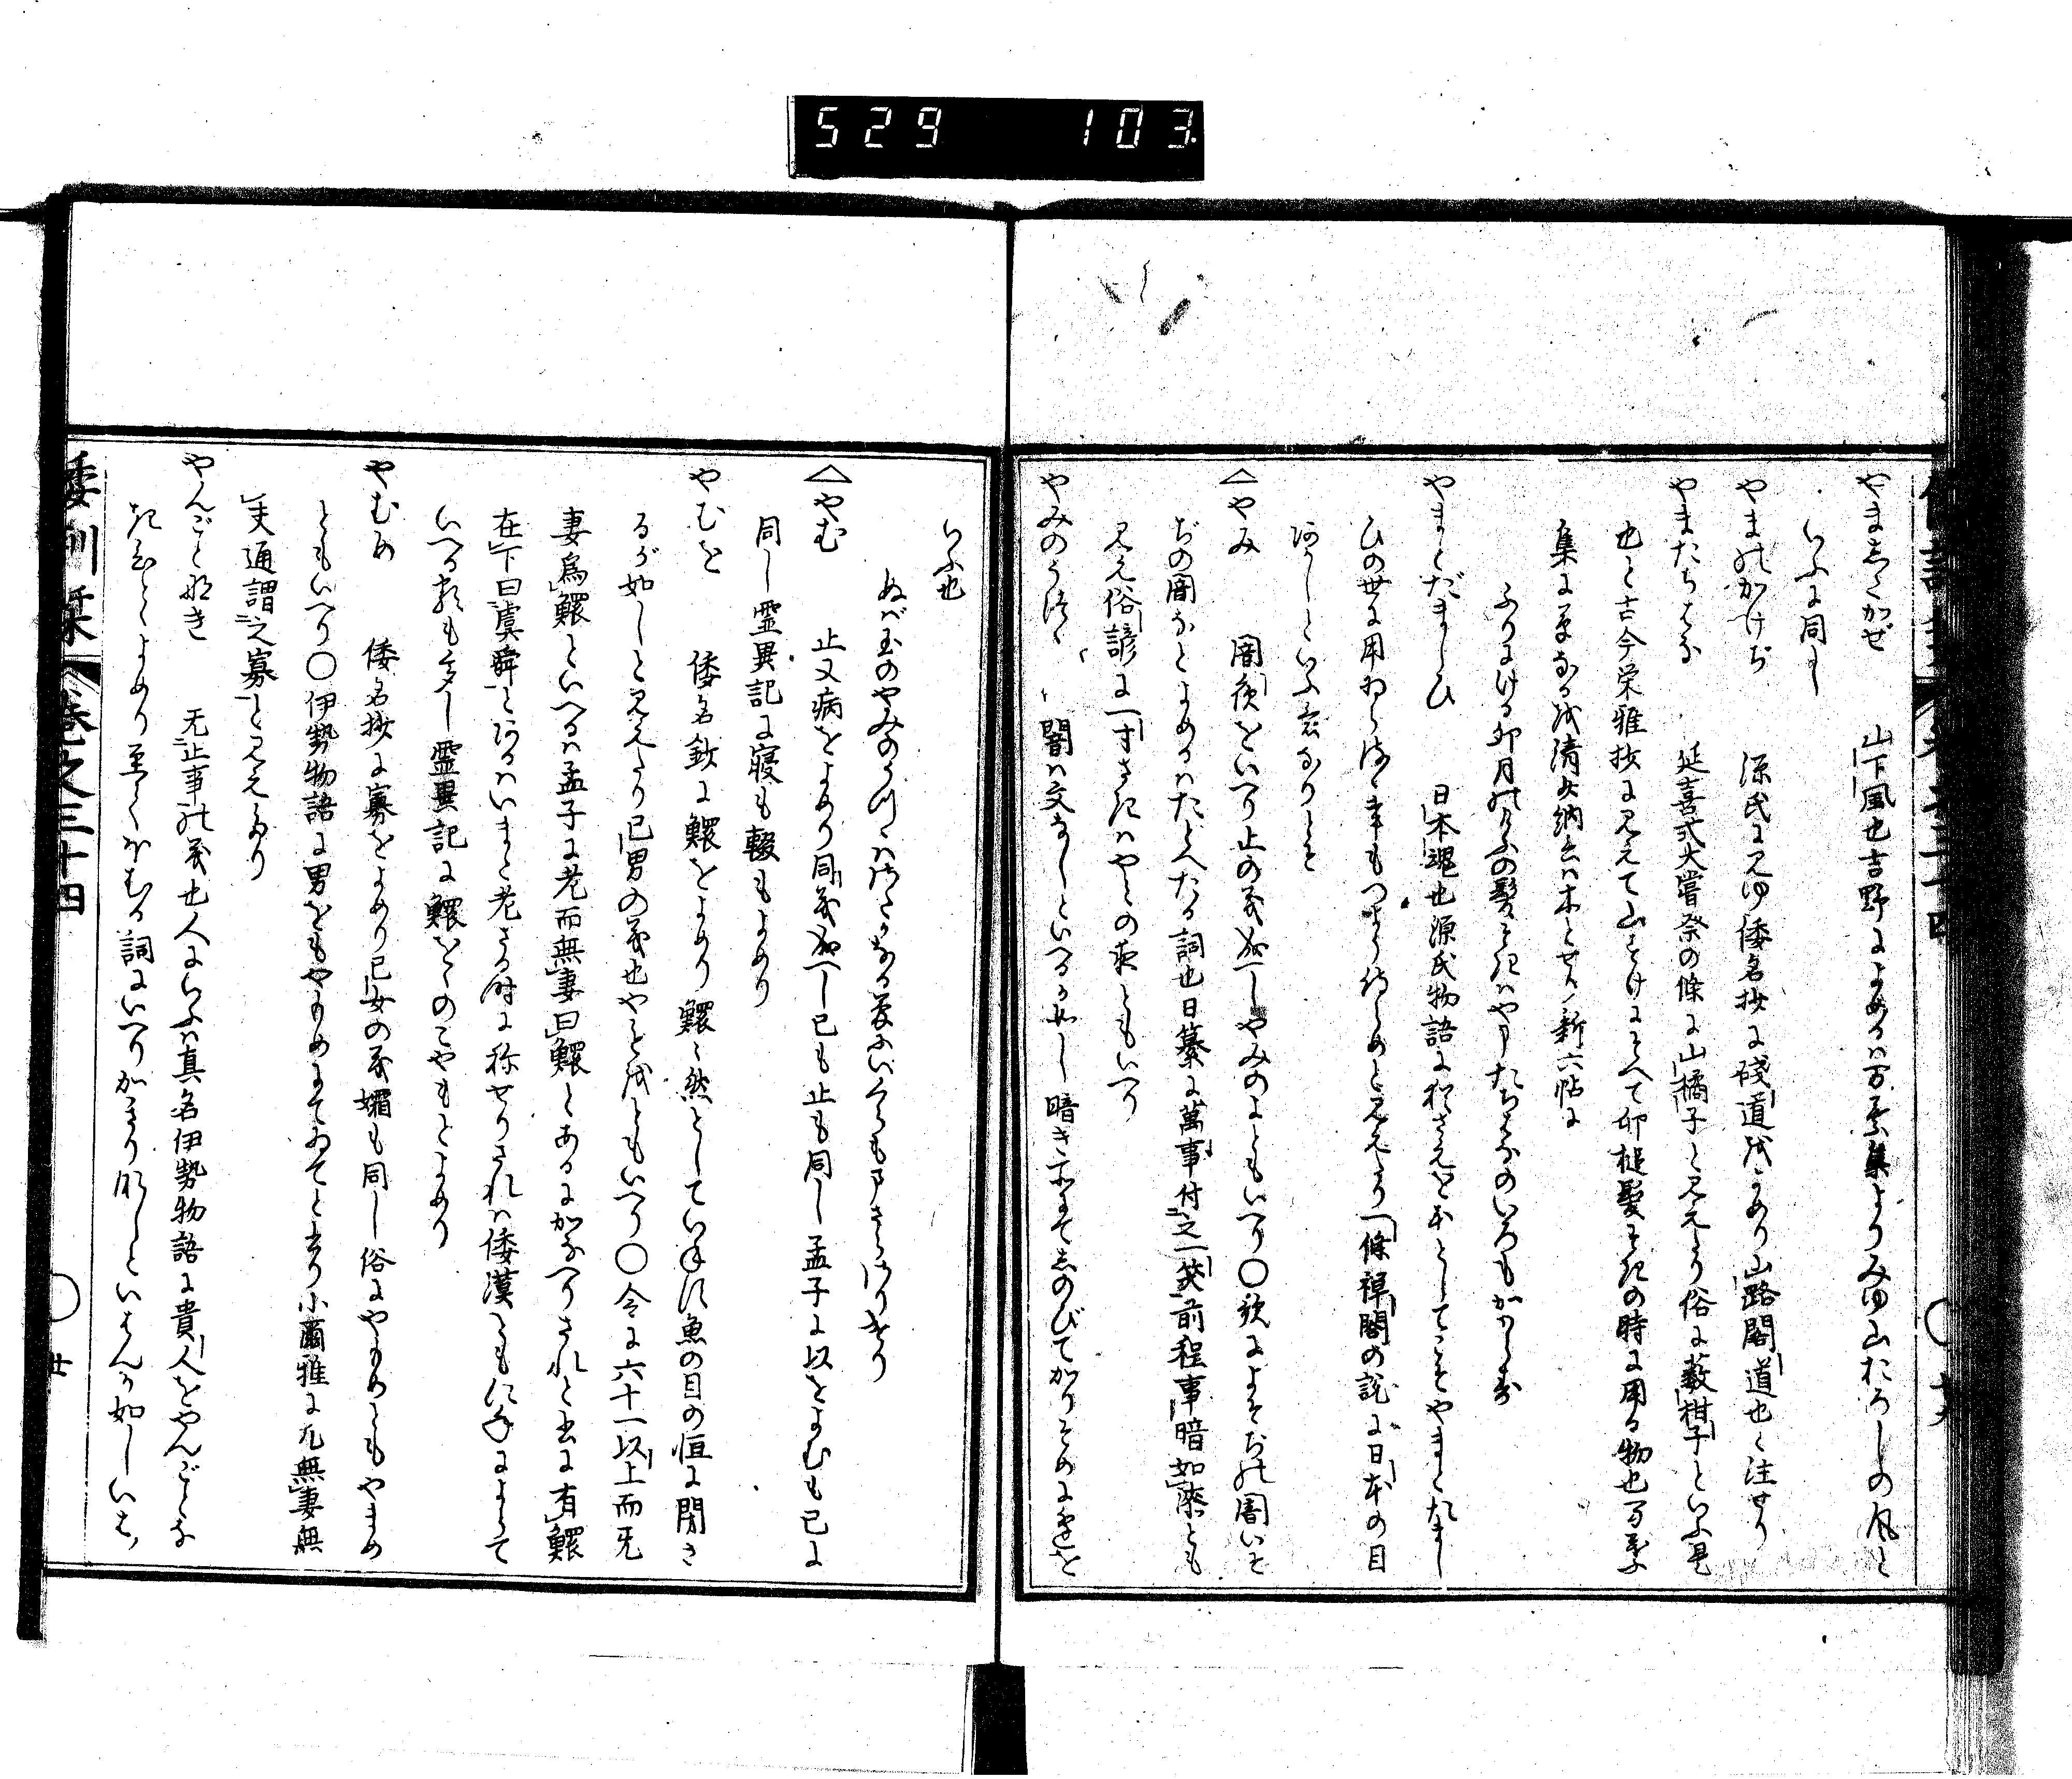 529 103
やましたかぜ 山下風也吉野によめるハ万葉集よりみゆ山おろしの風と
いふに同し
やまのかけぢ 源氏に見ゆ倭名抄に磴道をよめり山路閣道也と注せり
やまたちばな 延喜式大嘗祭の條に山橘子と見えたり俗に藪柑子といふ是
也と古今栄雅抄に見えて山すけにそへて卯槌髪そきの時に用る物也万葉
集に草なるを清少納言ハ木とせり新六帖に
ふりにける卯月のけふの髪そきハやまたちばなのいろもかハらず
やまとだましひ 日本魂也源氏物語に猶さえを本としてこそやまとたまし
ひの世に用ゐらるゝ事もつよう侍らめと見えたり一條禅閤の説に日本の目
あかしといふ意なりとそ
△やみ 闇夜をいへり止の義成へしやみのよともいへり〇歌によそぢの闇いそ
ぢの闇なとよめるハたとへたる詞也日纂に萬事付之一笑前程事暗如漆とも
見え俗諺に一寸さきハやみの夜ともいへり
やみのうつゝ 闇ハ文なしといへる如し暗き所にてしのびてかりそめに逢を
いふ也
ぬば玉のやみのうつゝハさたかなる夢にいくらもまさらさりけり
△やむ 止又病をよめり同義成へし已も止も同し孟子に以をよむも已に
同し霊異記に寝も輟もよめり
やむを 倭名鈔に鰥をよめり鰥々然としていねず魚の目の恒に閉さ
るが如しと見えたり已男の義也やもをともいへり〇令に六十一以上而无
妻為鰥といへるハ孟子に老而無妻曰鰥とあるにかなへりされと書に有鰥
在下曰虞舜とあるハいまた老さる時に称せりされハ倭漢ともにねによりて
いへる故も多し霊異記に鰥をゝのこやもとよめり
やむめ 倭名抄に寡をよめり已女の義孀も同し俗にやもめともやまめ
ともいへり〇伊勢物語に男をもやもめにてゐてと書り小爾雅に凡無妻無
夫通謂之寡と見えたり
やんごとなき 无止事の義也人にいふハ真名伊勢物語に貴人をやんごとな
きひとゝよめり至てほむる詞にいへりかきり所しといはんか如しいは
倭訓栞 巻之三十四 廿